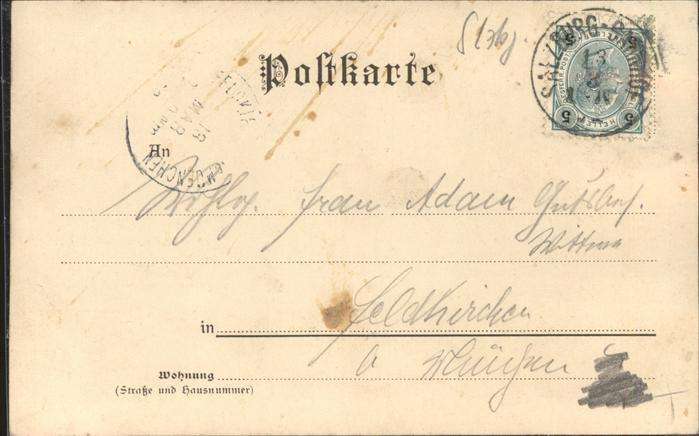 Postkarte
SALZBURG
5 HELLER 5
13
MUENCHEN
13 MAR
An
Wohlg. Frau Adam Gutsbes.
Wittwe
in Feldkirchen
b München
Wohnung
(Straße und Hausnummer)